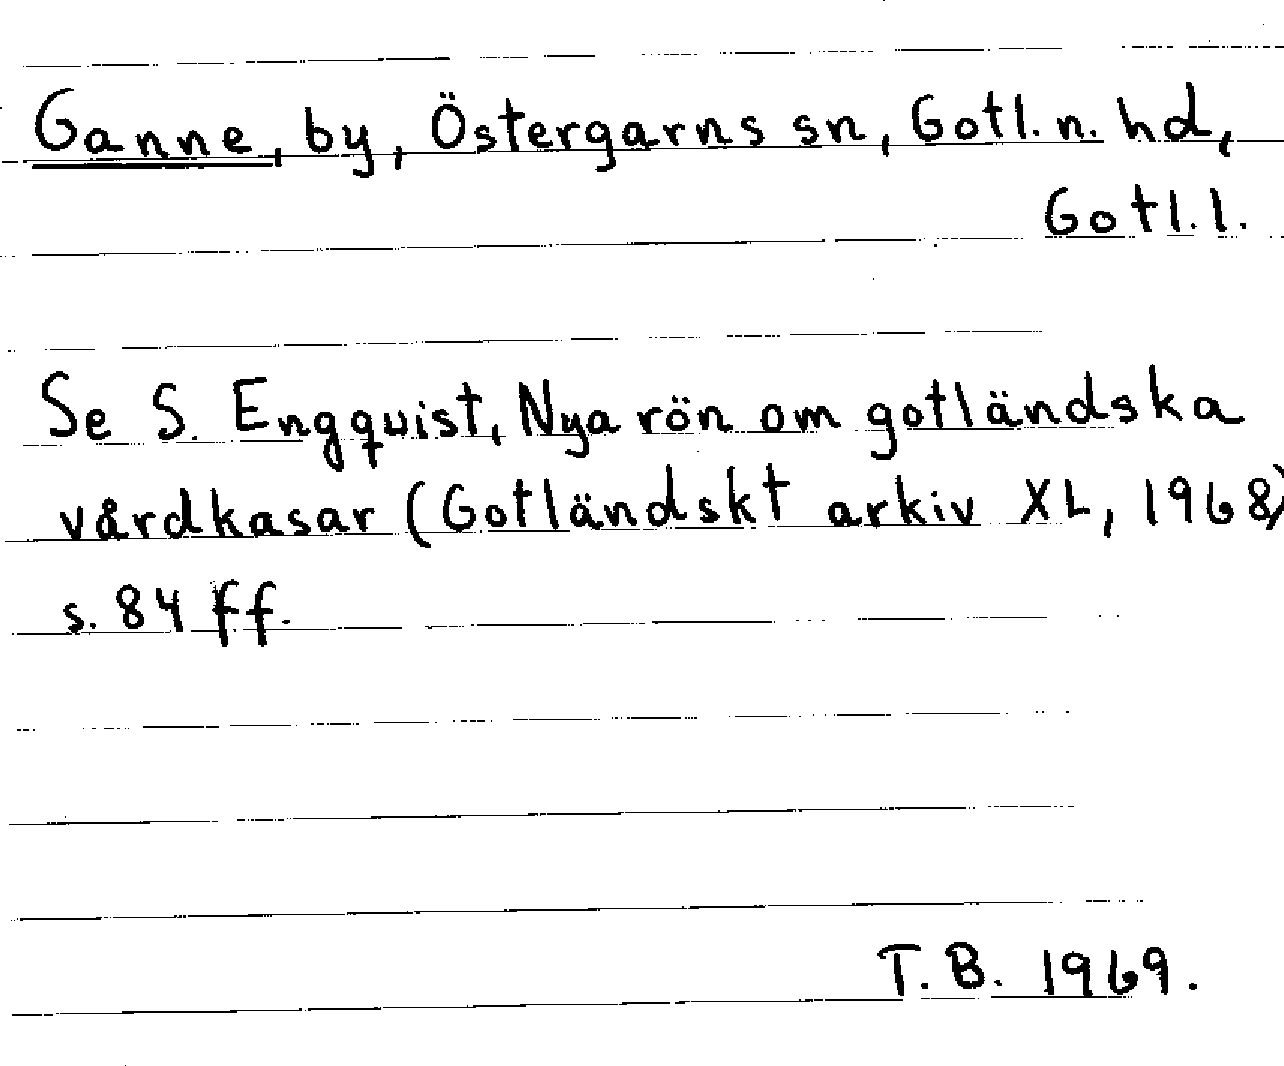 Ganne, by, Östergarns sn, Gotl. n. hd,
Gotl. l.
Se S. Engquist, Nya rön om gotländska
vårdkasar (Gotländskt arkiv XL, 1968)
s. 84 ff.
T.B. 1969.